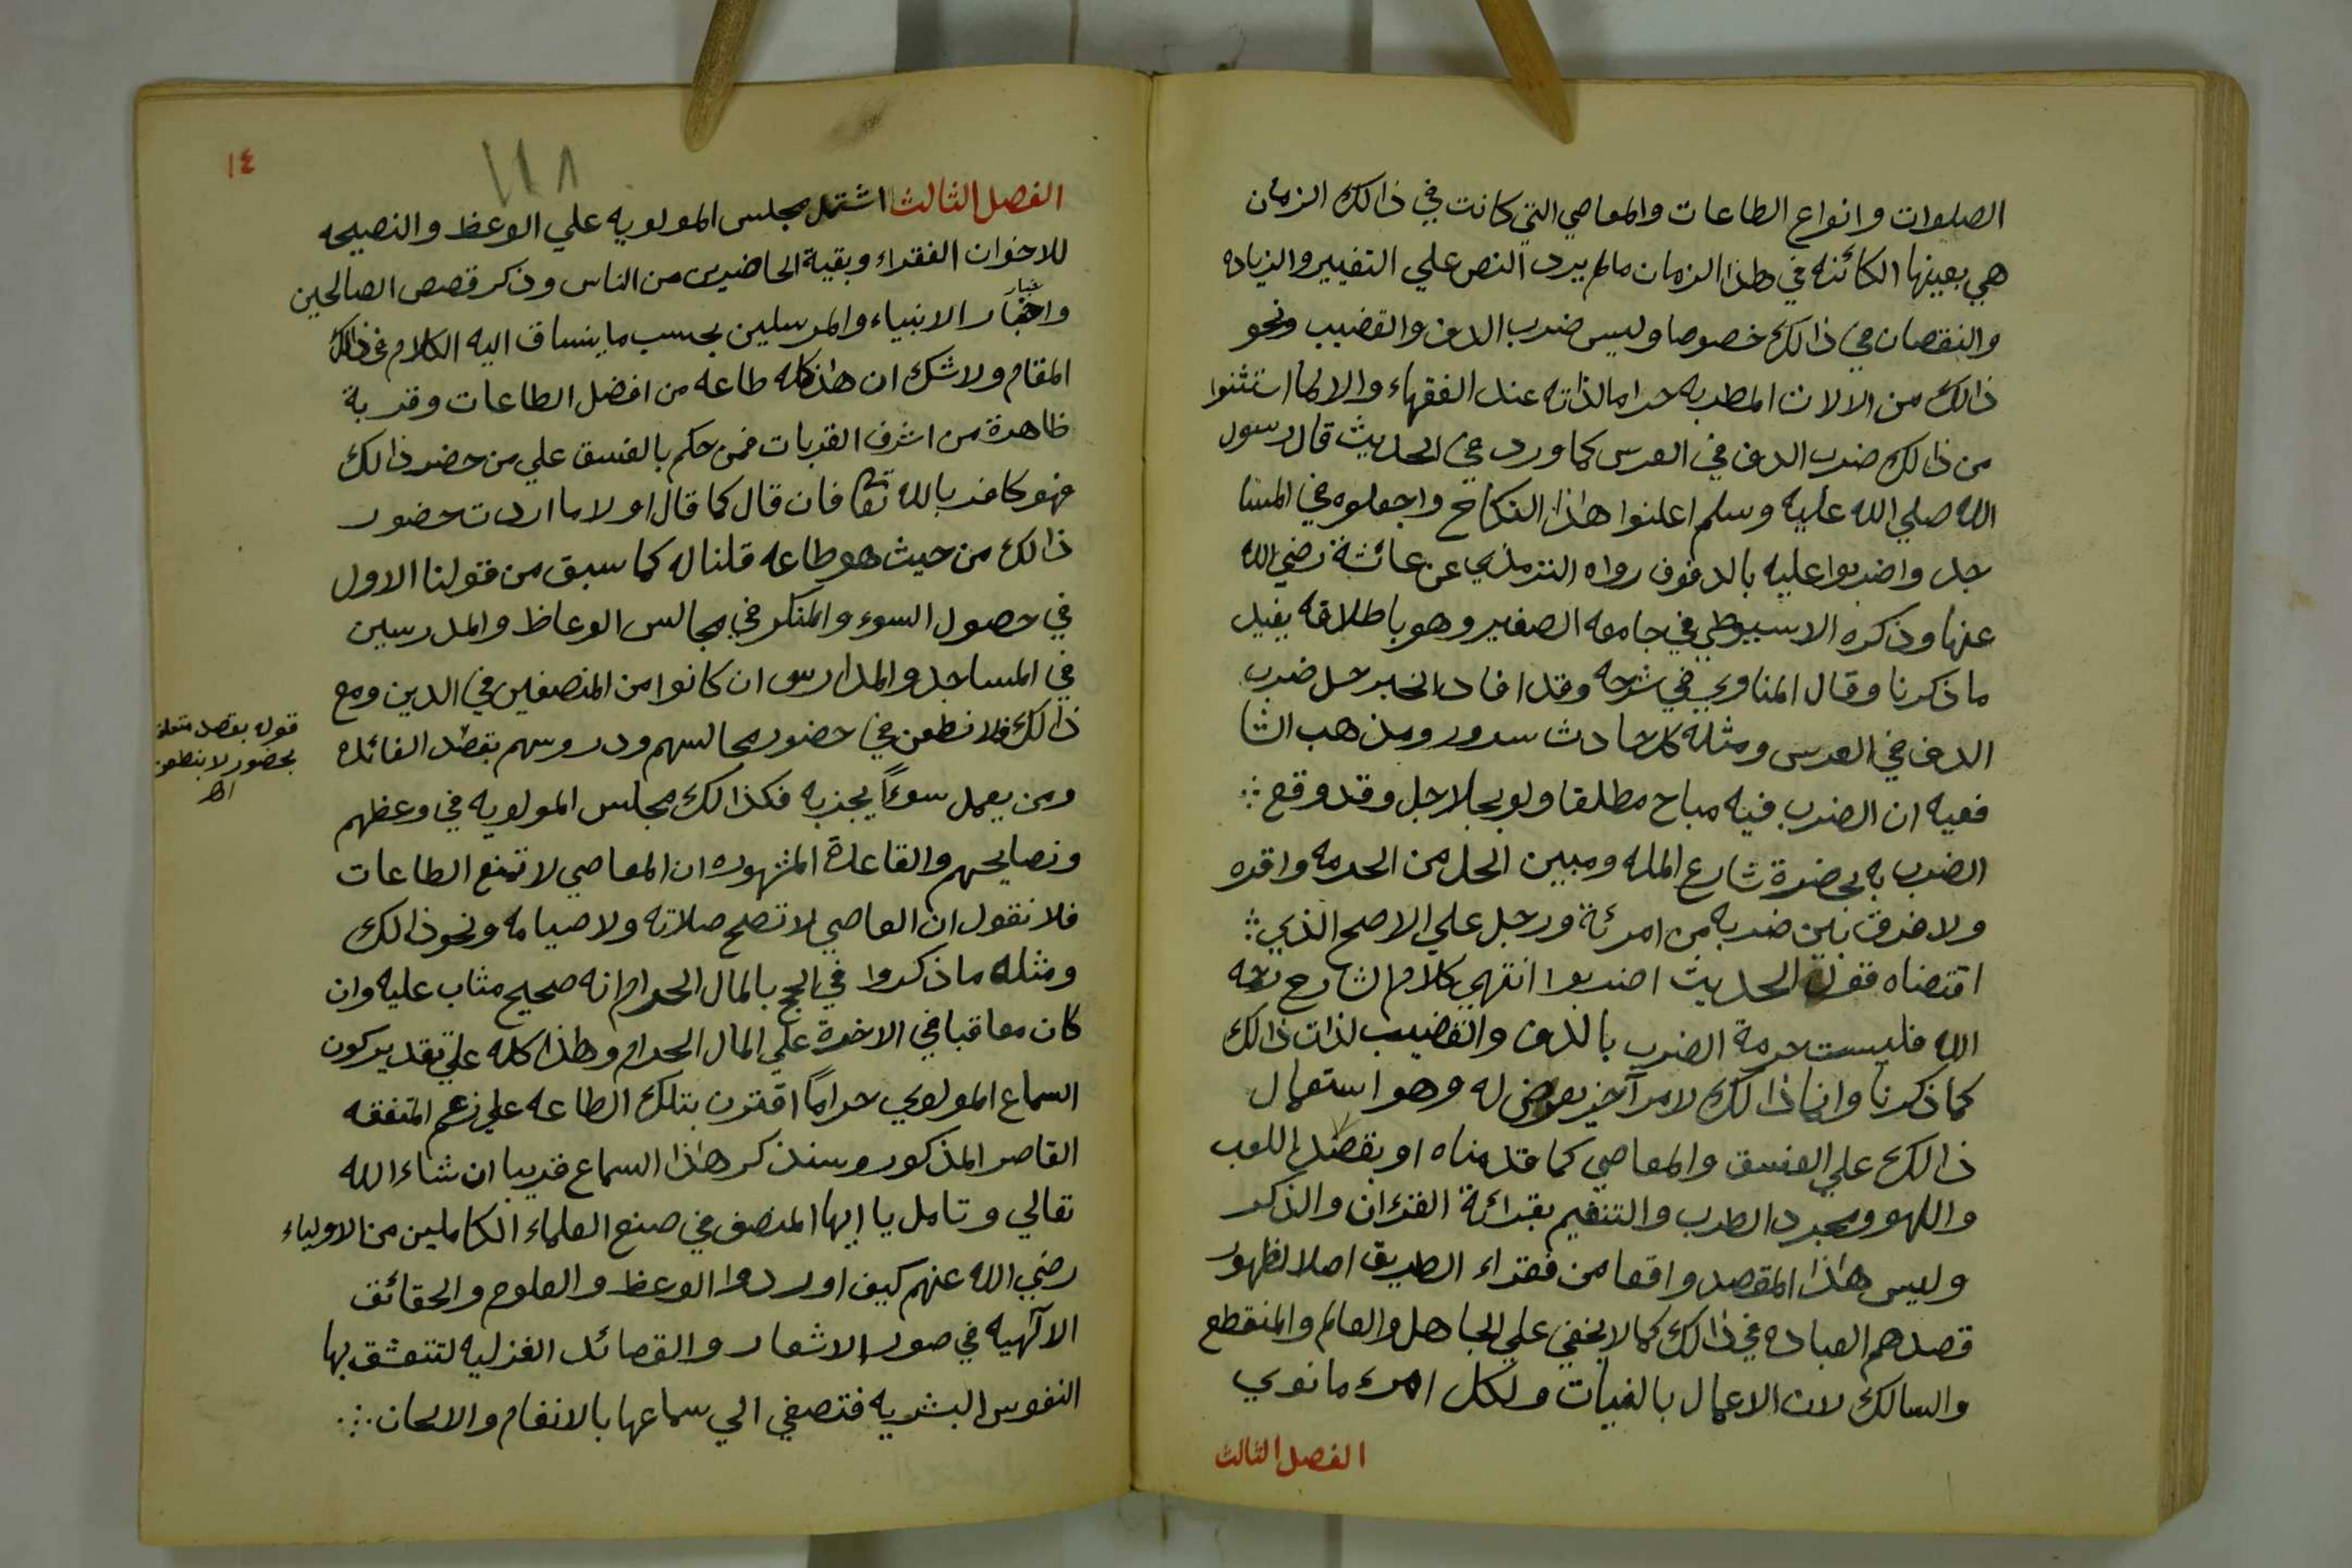 الصلوات وانواع الطاعات والمعاصي التي كانت في ذالك الزمان
هي بعينها الكائنه في هذا الزمان مالم يرد النص علي التغيير والزياده
والنقصان في ذالك خصوصا وليس ضرب الدف والقضيب ونحو
ذالك من الالات المطربه حراما لذاته عند الفقهاء والالما استثنوا
من ذالك ضرب الدف في العرس كما ورد في الحديث قال رسول
الله صلي الله عليه وسلم اعلنوا هذا النكاح واجعلوه في المسا
جد واضربوا عليه بالدفوف رواه الترمذي عن عائشة رضي الله
عنها وذكره الاسيوطي في جامعه الصغير وهو باطلاقه يفيد
ما ذكرنا وقال المناوي في شرحه وقد افاد الخبر حل ضرب
الدف في العرس ومثله كل حادث سرور ومذهب الشا
فعيه ان الضرب فيه مباح مطلقا ولو بجلاجل وقد وقع
الضرب به بحضرة شارع المله ومبين الحل من الحرمه واقره
ولا فرق بين ضربه من امرئة ورجل علي الاصح الذي
اقتضاه قوله الحديث اضربوا انتهي كلام الشارح رحمه
الله فليست حرمة الضرب بالدف والقضيب لذات ذالك
كما ذكرنا وانما ذالك لامر آخر يعرض له وهو استعمال
ذالك علي الفسق والمعاصي كما قدمناه او بقصد اللعب
واللهو ومجرد الطرب والتنغيم بقرائة القرءان والذكر
وليس هذا المقصد واقعا من فقراء الطريق اصلا لظهور
قصدهم العباده في ذالك كما لا يخفي علي الجاهل والعالم والمنقطع
والسالك لان الاعمال بالنيات ولكل امرء ما نوي
الفصل الثالث
١٤
١١٨
الفصل الثالث اشتمل مجلس المولويه علي الوعظ والنصيحه
للاخوان الفقراء وبقية الحاضرين من الناس وذكر قصص الصالحين
واخبار الانبياء والمرسلين بحسب ما ينساق اليه الكلام في ذالك
المقام ولا شك ان هذا كله طاعه من افضل الطاعات وقربة
ظاهرة من اشرف القربات فمن حكم بالفسق علي من حضر ذالك
فهو كافر بالله تعا فان قال كما قال اولا ما اردت حضور
ذالك من حيث هو طاعه قلنا له كما سبق من قولنا الاول
في حصول السوء والمنكر في مجالس الوعاظ والمدرسين
في المساجد والمدارس ان كانوا من المنصفين في الدين ومع
ذالك فلا نطعن في حضور مجالسهم ودروسهم بقصد الفائده
ومن يعمل سوءًا يجز به فكذالك مجلس المولويه في وعظهم
ونصايحهم والقاعدة المشهوره ان المعاصي لا تمنع الطاعات
فلا نقول ان العاصي لا تصلح صلاته ولا صيامه ونحو ذالك
ومثله ما ذكروا في الحج بالمال الحرام انه صحيح مثاب عليه وان
كان معاقبا في الاخرة علي المال الحرام وهذا كله علي تقدير كون
السماع المولوي حرامًا اقترن بتلك الطاعه علي زعم المتفقه
القاصر المذكور وسنذكر هذا السماع قريبا ان شاء الله
تعالي وتامل يا ايها المنصف في صنع العلماء الكاملين من الاولياء
رضي الله عنهم كيف اوردوا الوعظ والعلوم والحقائق
الآلهيه في صور الاشعار والقصائد الغزليه لتتعشق بها
النفوس البشريه فتصغي الي سماعها بالانغام والالحان
قوله بقصد متعلق
بحضور لا بنطعن
اهـ